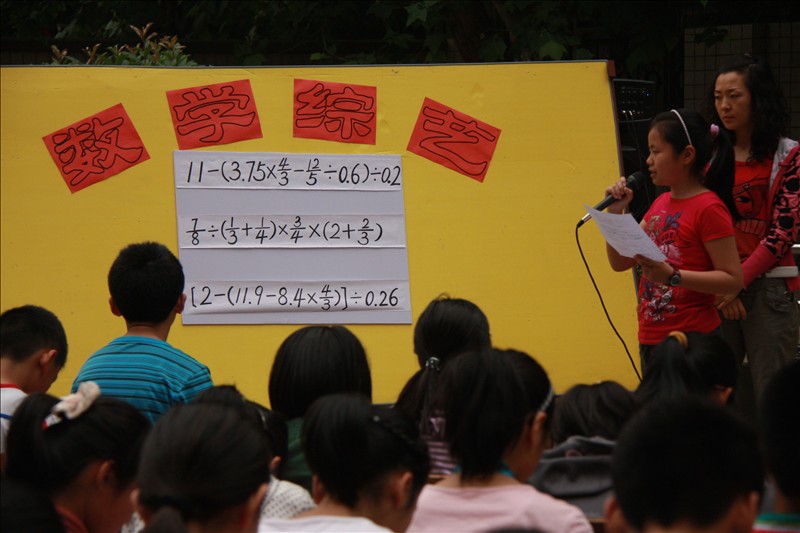 数学综艺
11-(3.75×4/3-12/5÷0.6)÷0.2
7/8÷(1/3+1/4)×3/4×(2+2/3)
[2-(11.9-8.4×4/3)]÷0.26